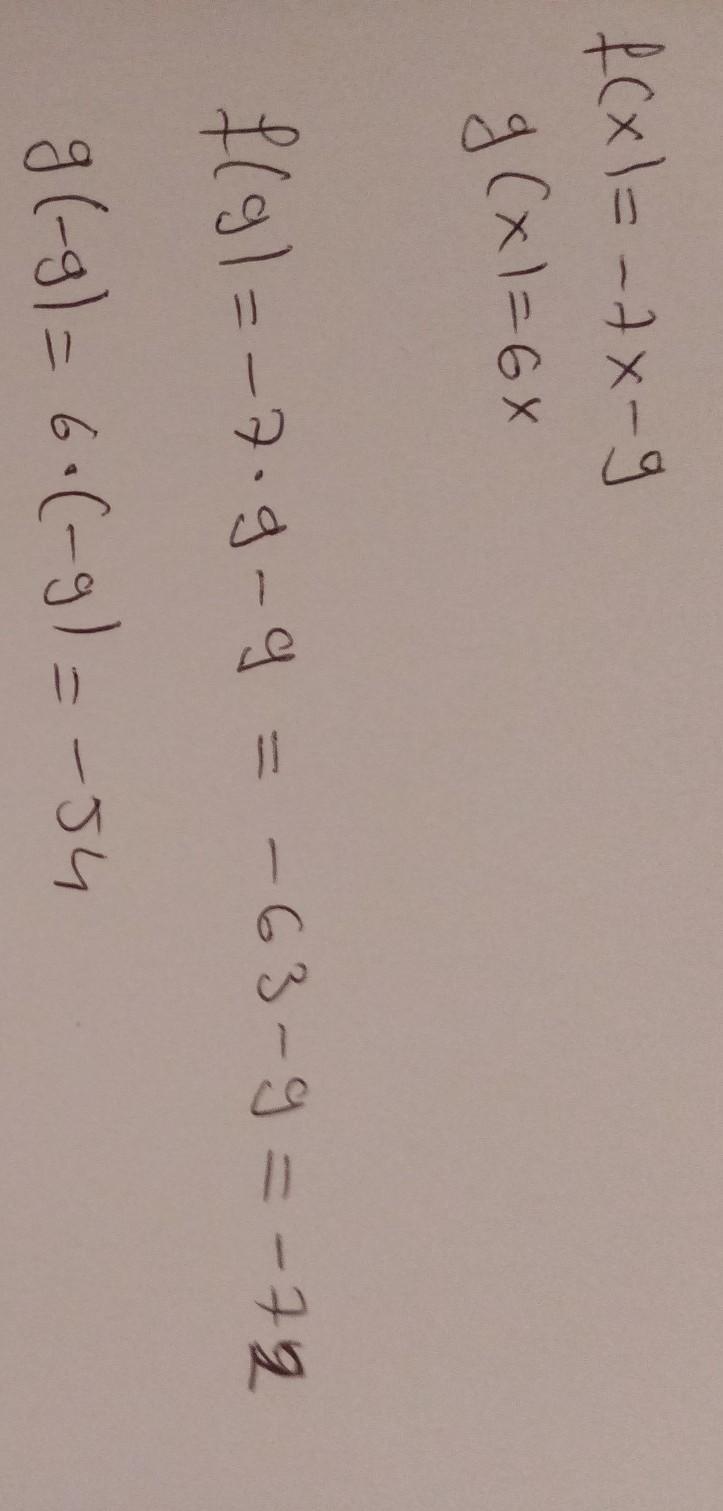 f(x)=-7x-9
g(x)=6x
f(9)=-7·9-9=-63-9=-72
g(-9)=6·(-9)=-54